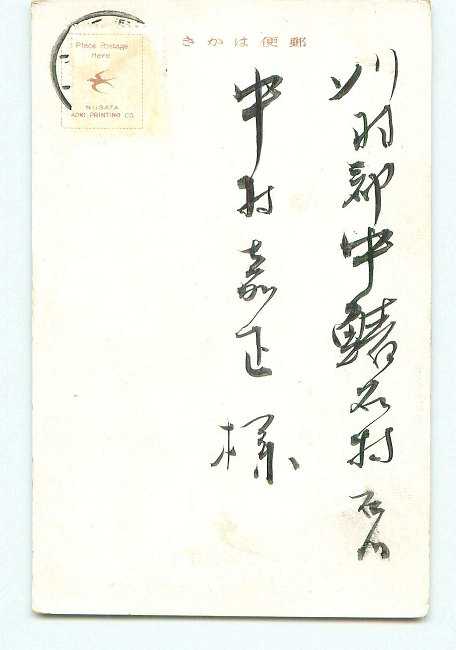 きかは便郵
Place Postage
Here
NIIGATA
AOKI PRINTING CO.
刈羽郡中鯖石村石川
中村嘉正様